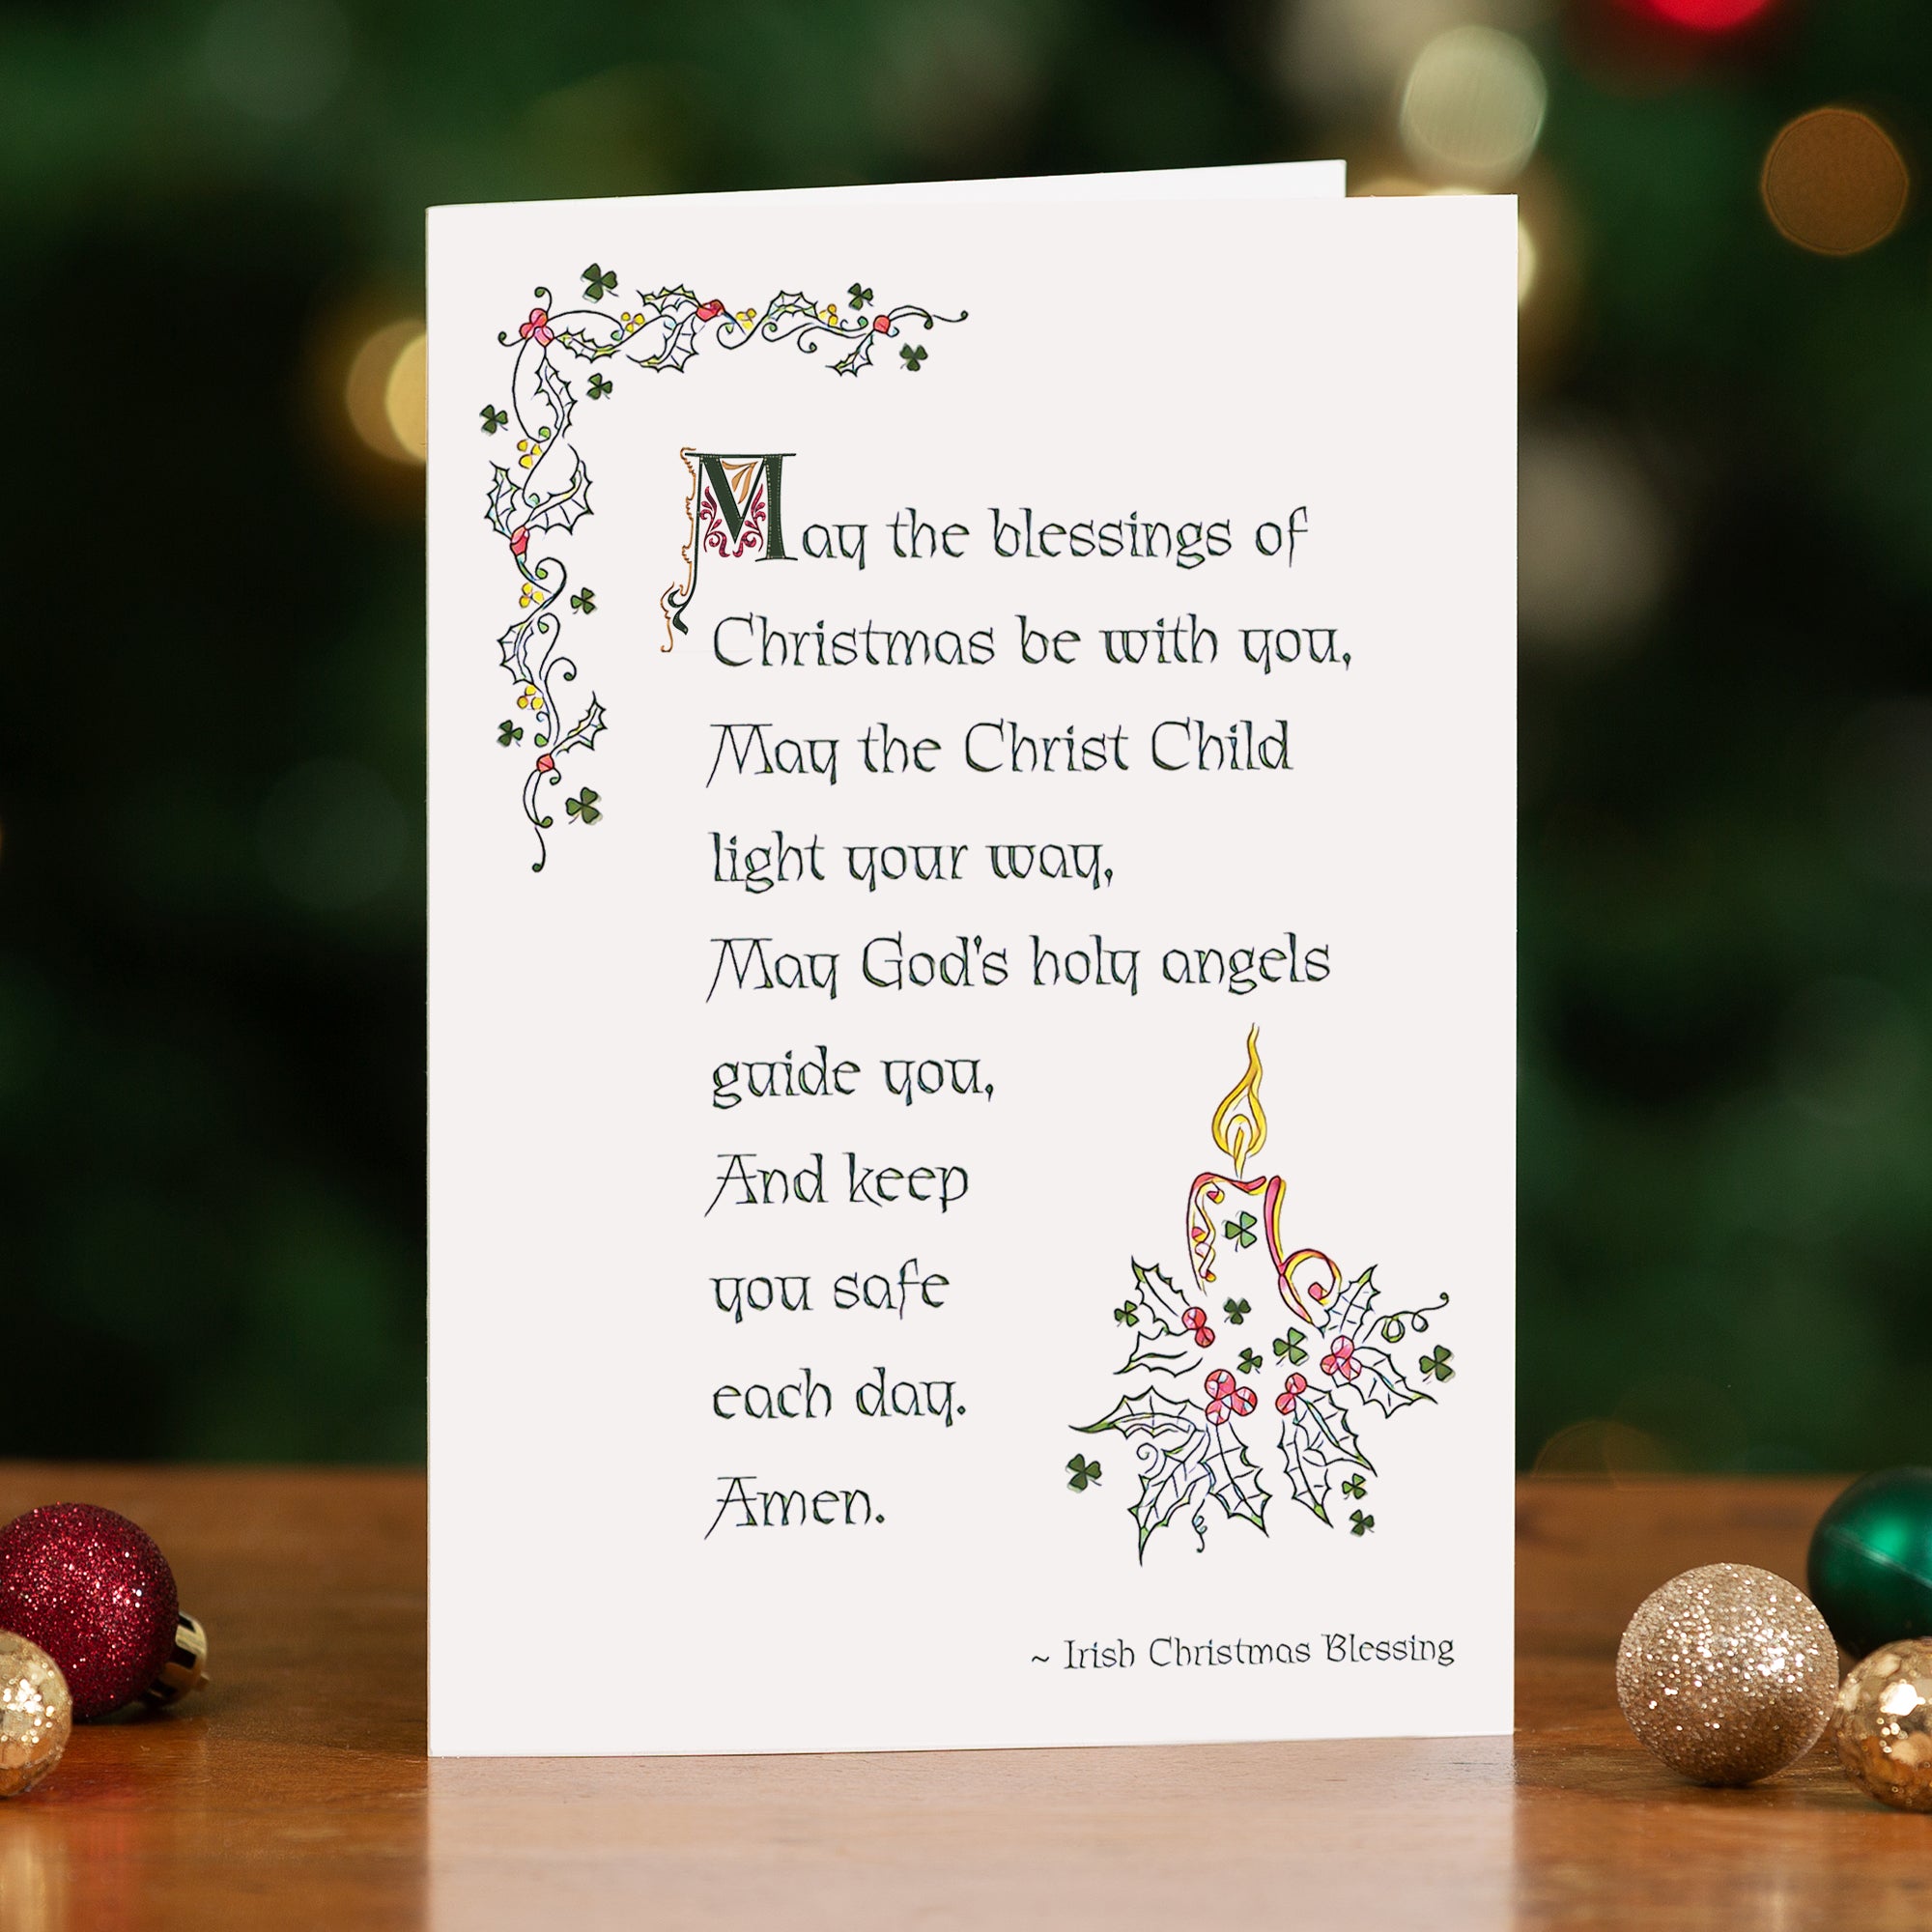 May the blessings of
Christmas be with you,
May the Christ Child
light your way,
May God's holy angels
guide you,
And keep
you safe
each day.
Amen.
~ Irish Christmas Blessing